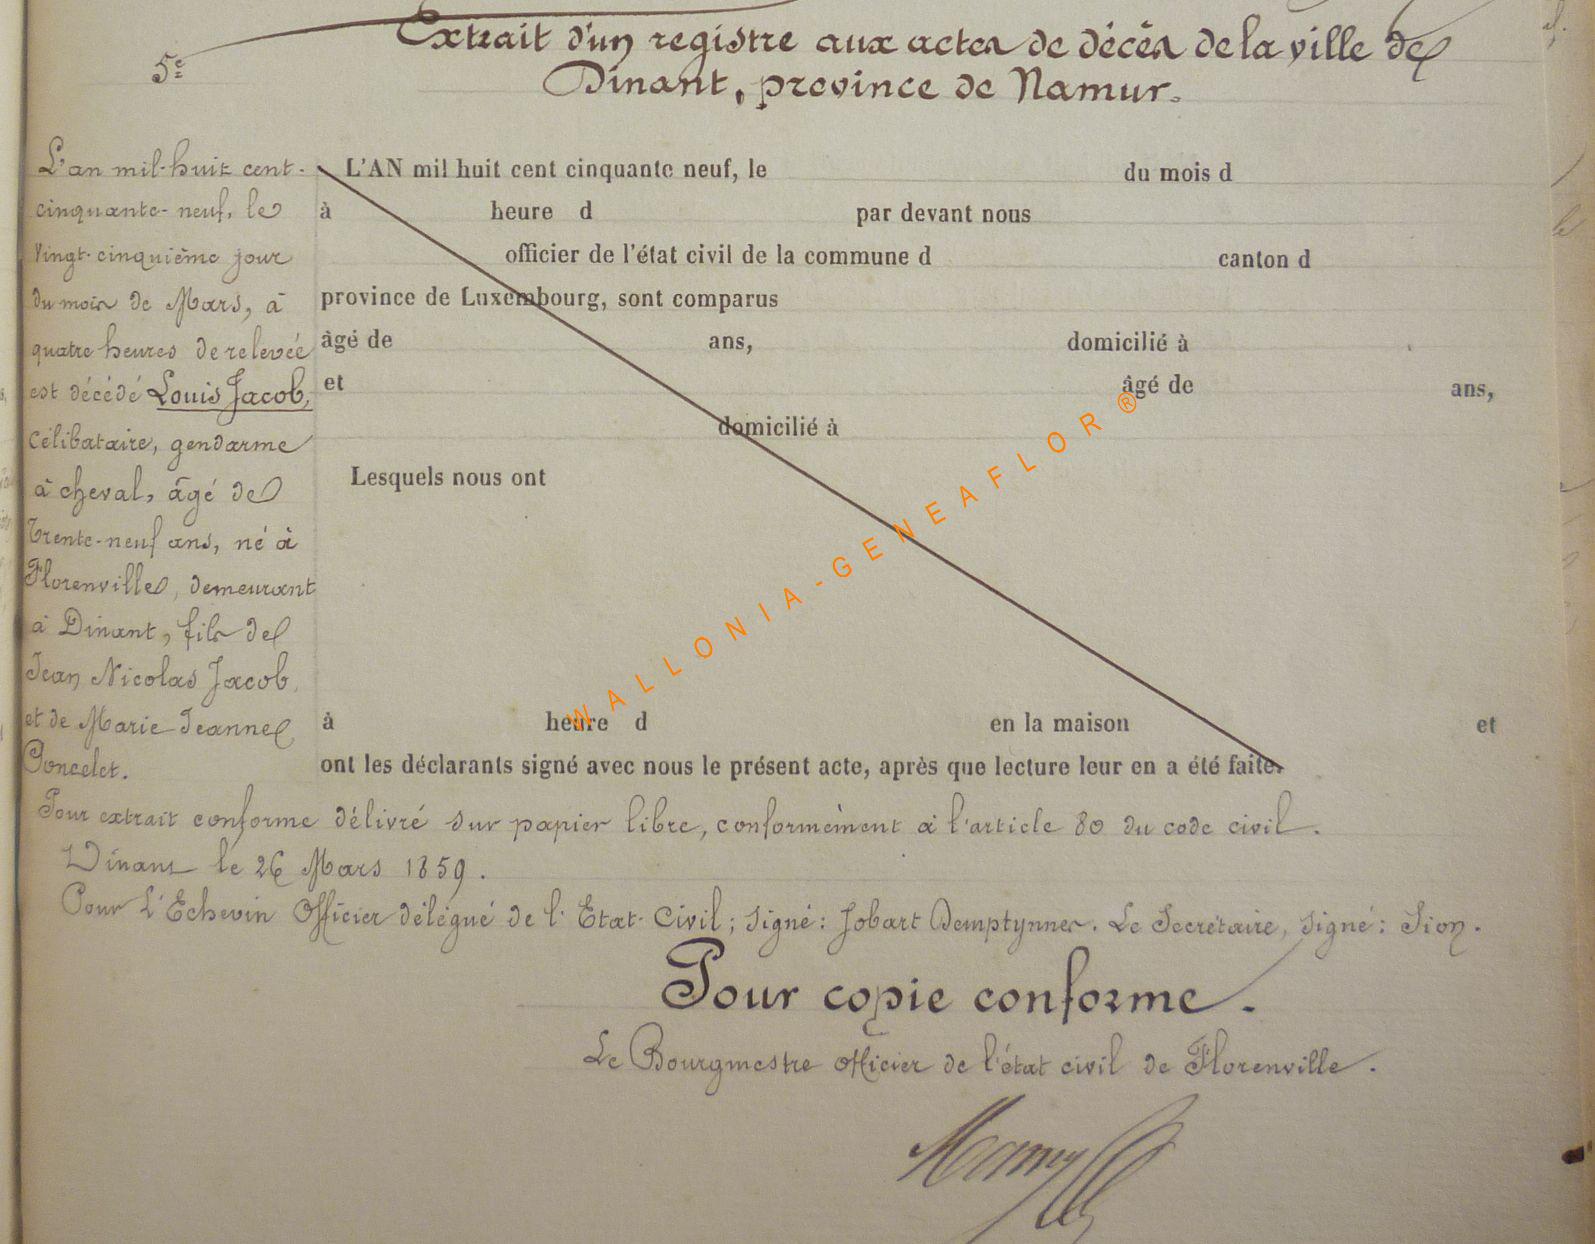 Extrait d'un registre aux actes de décès de la ville de
5e
Dinant, province de Namur.
L'an mil-huit cent-
cinquante-neuf, le
vingt-cinquième jour
du mois de Mars, à
quatre heures de relevée
est décédé Louis Jacob,
célibataire, gendarme
à cheval, âgé de
trente-neuf ans, né à
Florenville, demeurant
à Dinant, fils de
Jean Nicolas Jacob,
et de Marie Jeanne
Poncelet.
L'AN mil huit cent cinquante neuf, le du mois d
à heure d par devant nous
officier de l'état civil de la commune d canton d
province de Luxembourg, sont comparus
âgé de ans, domicilié à
et âgé de ans,
domicilié à
Lesquels nous ont
à heure d en la maison et
ont les déclarants signé avec nous le présent acte, après que lecture leur en a été faite.
Pour extrait conforme délivré sur papier libre, conformèment à l'article 80 du code civil.
Dinant le 26 Mars 1859.
Pour L'Echevin Officier délégué de l'Etat-Civil; signé: Jobart Demptynnes. Le Secrétaire, signé: Sion.
Pour copie conforme.
Le Bourgmestre officier de l'état civil de Florenville.
WALLONIA-GENEAFLOR ®